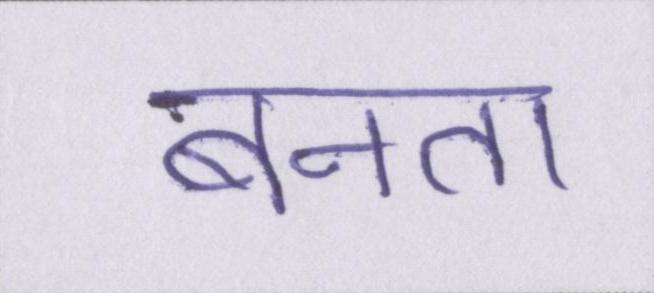 बनता